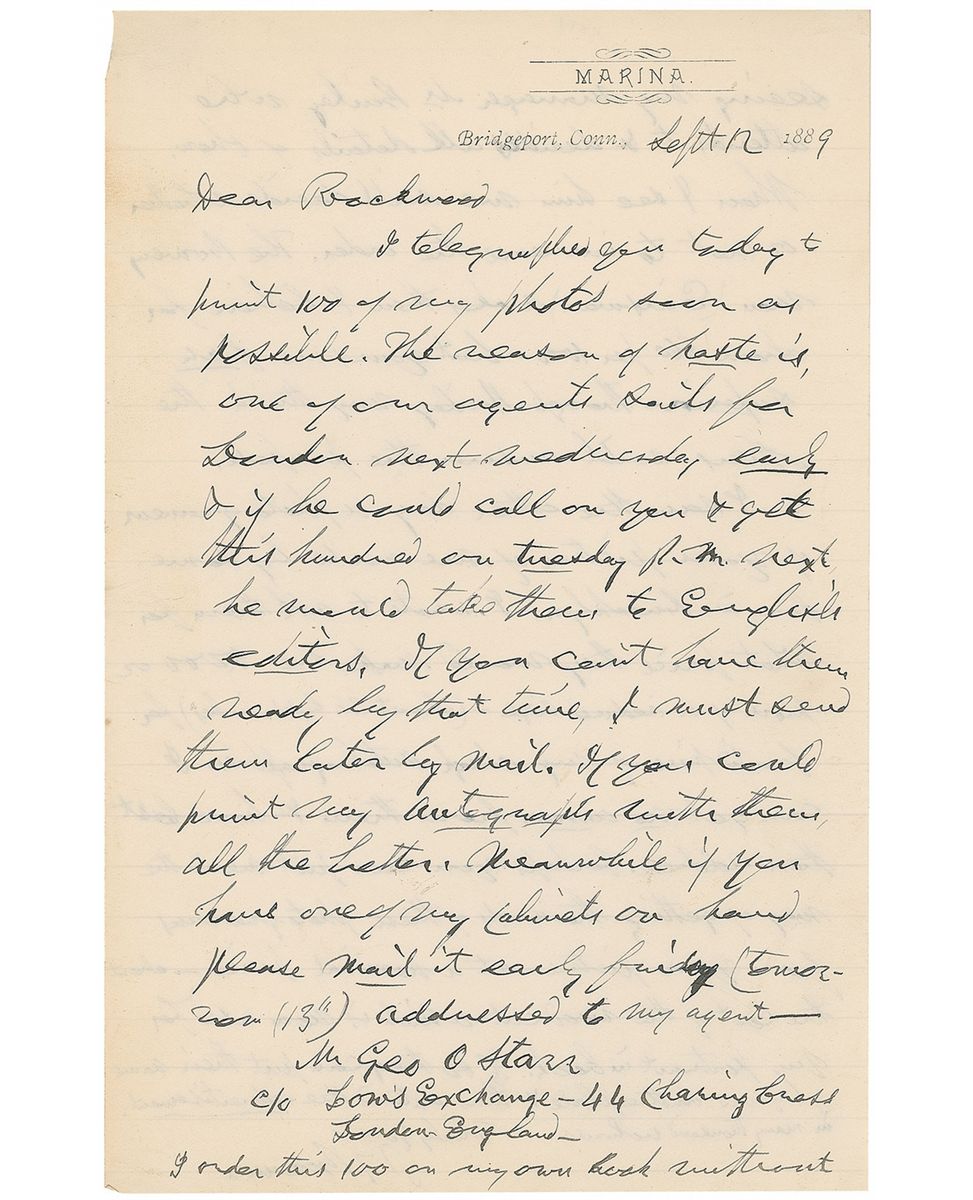 MARINA.
Bridgeport, Conn., Sept 12 1889
Dear Rockwood
I telegraphed you today to
print 100 of my photos soon as
possible. The reason of haste is,
one of our agents sails for
London next wednesday early
& if he could call on you & get
this hundred on tuesday P. M. next
he would take them to English
editors. If you can't have them
ready by that time, I must send
them later by mail. If you could
print my autograph with them,
all the better. Meanwhile if you
have one of my Cabinets on hand
please mail it early friday (tomor-
row (13th) addressed to my agent —
Mr Geo O Starr
c/o Low's Exchange - 44 Charing Cross
London England -
I order this 100 on my own hook without